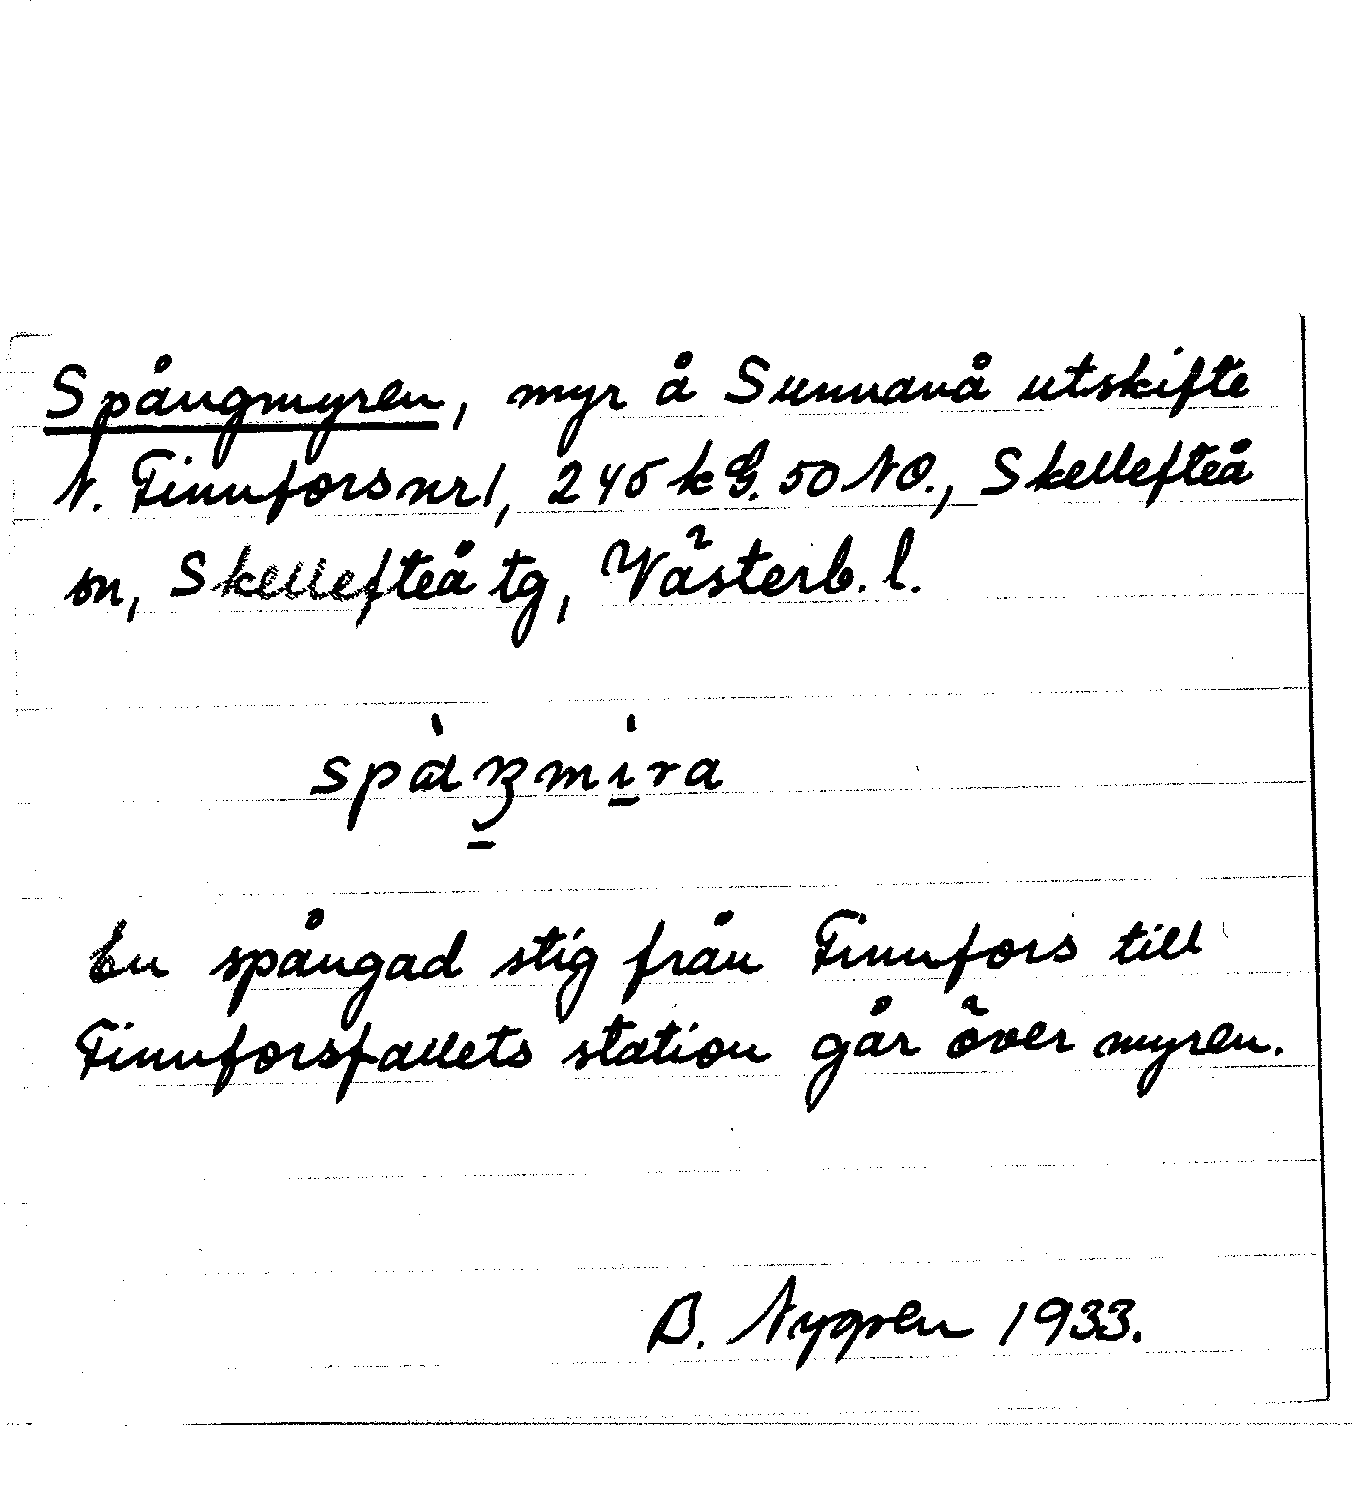 Spångmyren, myr å Sunnanå utskifte
N. Finnfors nr 1, 245 k G. 50 NO., Skellefteå
sn, Skellefteå tg, Västerb. l.
En spångad stig från Finnfors till
Finnforsfallets station går över myren.
B. Nygren 1933.